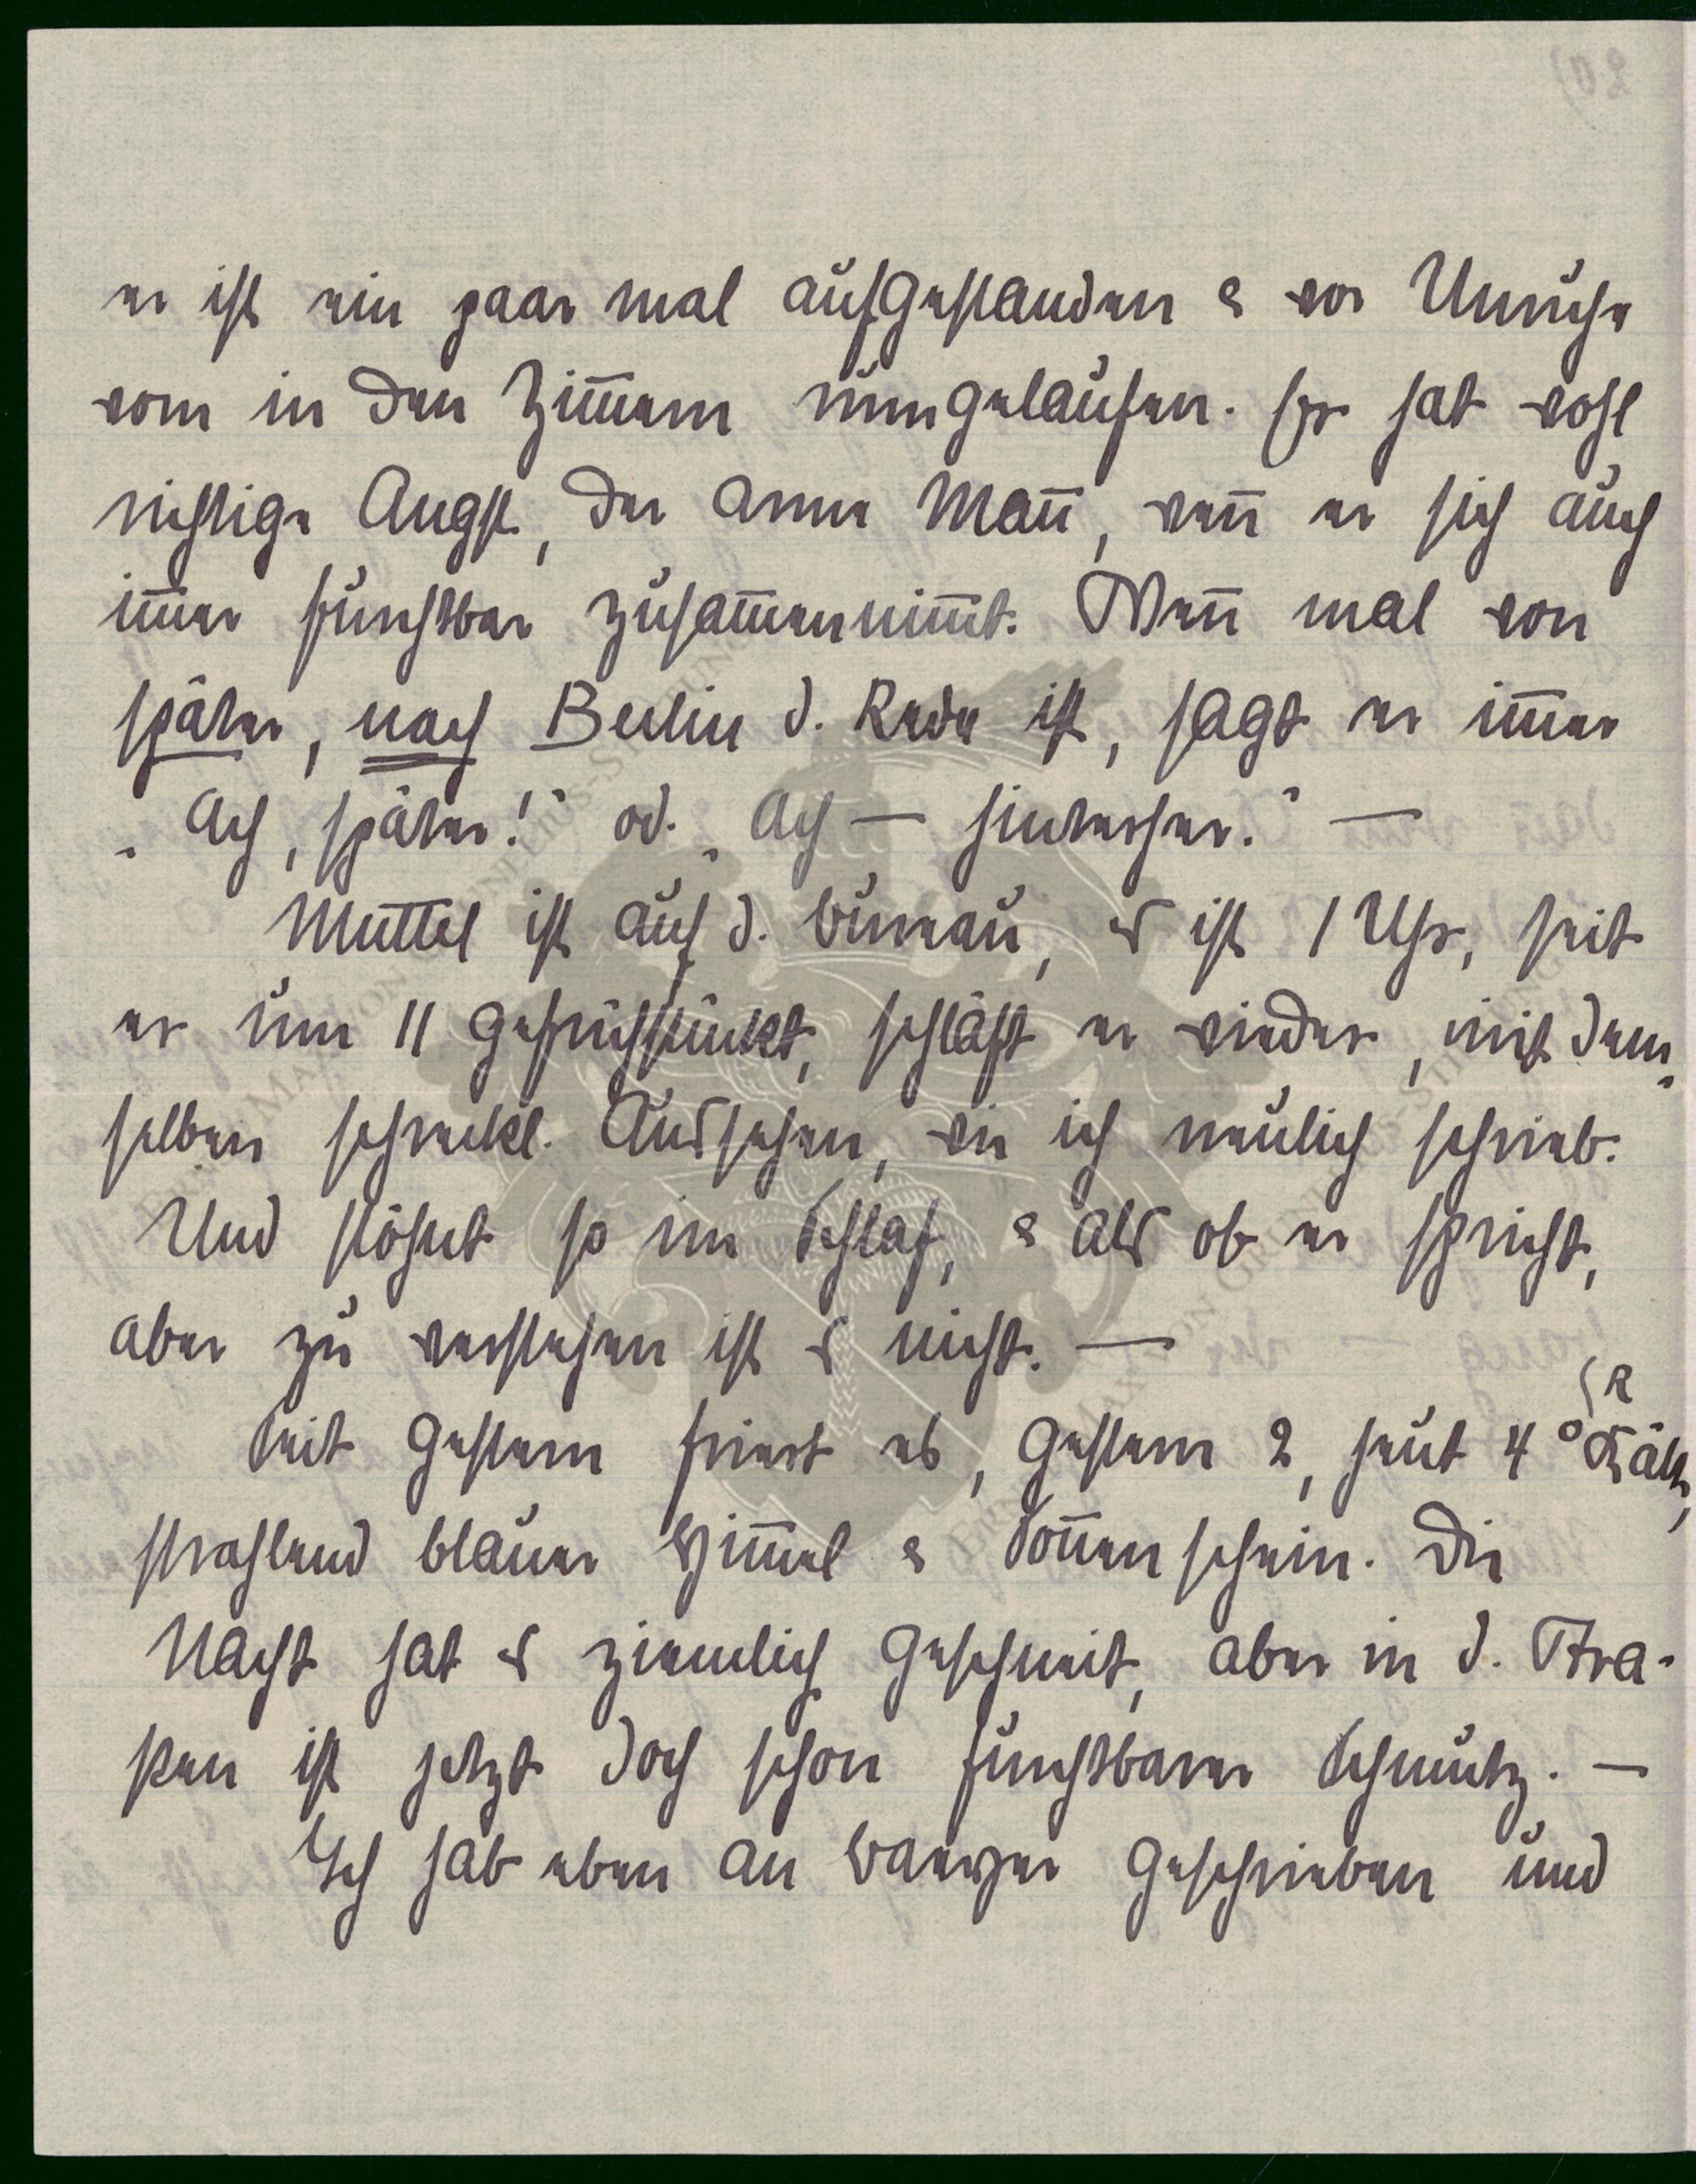 er ist ein paar mal aufgestanden & vor Unruhe
vorn in den Zim̅ern rumgelaufen. Er hat wohl
richtige Angst, der arme Man̅, wen̅ er sich auch
im̅er furchtbar zusam̅ennim̅t. Wen̅ mal von
später, nach Berlin d. Rede ist, sagt er im̅er
„Ach, später!“ od. „Ach — hinterher.“ —
Muttel ist auf d. Bureau, es ist 1 Uhr, seit
er um 11 gefrühstückt, schläft er wieder, mit dem-
selben schreckl. Aussehen, wie ich neulich schrieb.
Und stöhnt so im Schlaf, & als ob er spricht,
aber zu verstehen ist es nicht. —
Seit gestern friert es, gestern 2, heut 4° R Kälte,
strahlend blauer Him̅el & Son̅enschein. Die
Nacht hat es ziemlich geschneit, aber in d. Stra-
ßen ist jetzt doch schon furchtbarer Schmutz. —
Ich hab eben an geschrieben und